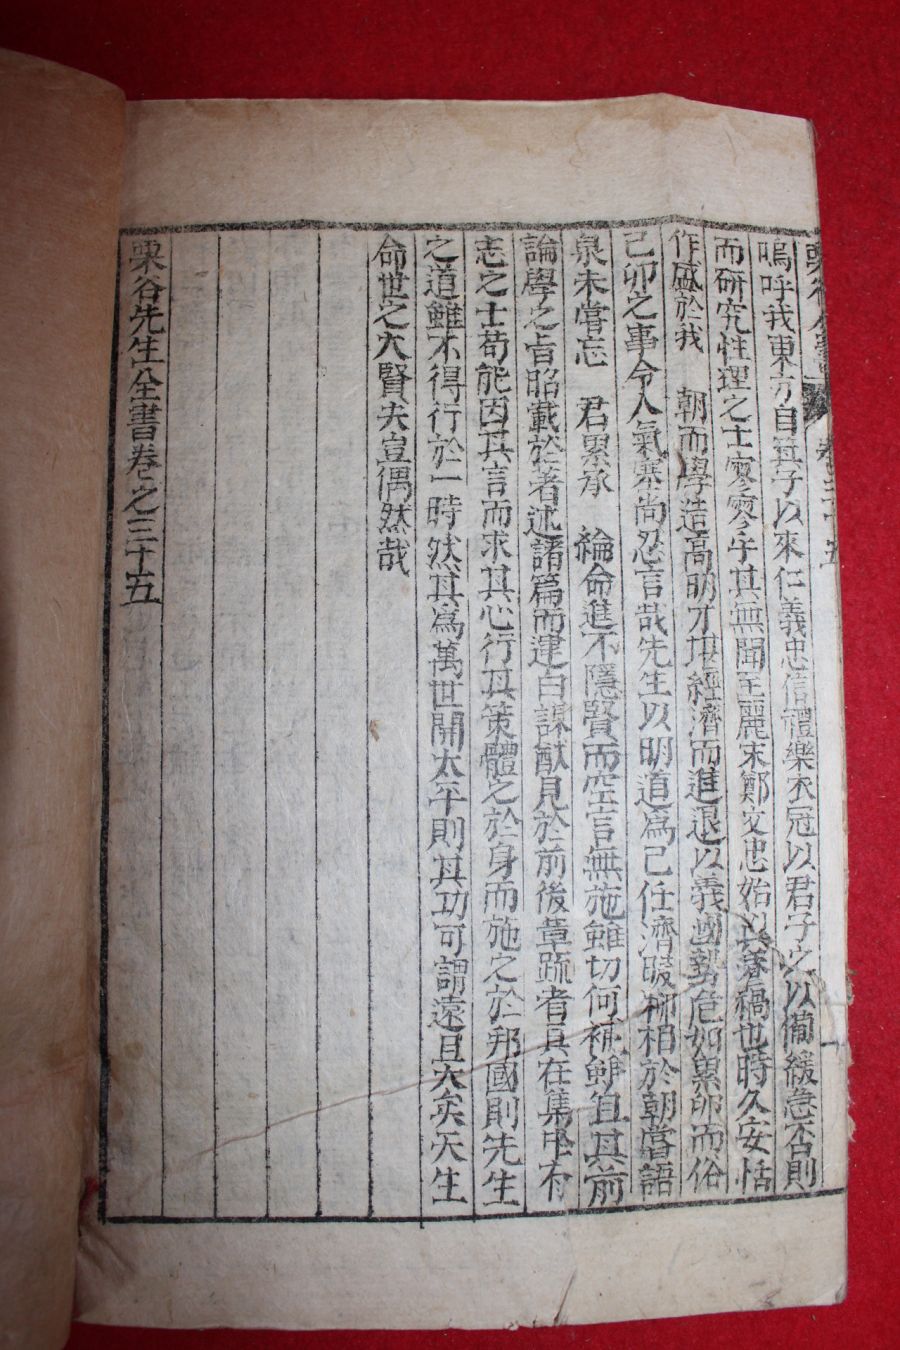 栗谷全書 卷三十五
嗚呼我東方自箕子以來仁義忠信禮樂衣冠以君子之以備緩急否則
而研究性理之士寥寥乎其無聞至麗末鄭文忠始以其稿也時久安恬
作盛於我 朝而學造高明才堪經濟而進退以義國勢危如累卵而俗
己卯之事令人氣塞尚忍言哉先生以明道爲己任濟時柳相於朝嘗語
泉未嘗忘 君累承 綸命進不隱賢而空言無施雖切何補其前
論學之旨昭載於著述諸篇而建白謀猷見於前後章疏者具在集中有
志之士苟能因其言而求其心行其策體之於身而施之於邦國則先生
之道雖不得行於一時然其爲萬世開太平則其功可謂遠且大矣天生
命世之大賢夫豈偶然哉
栗谷先生全書卷之三十五